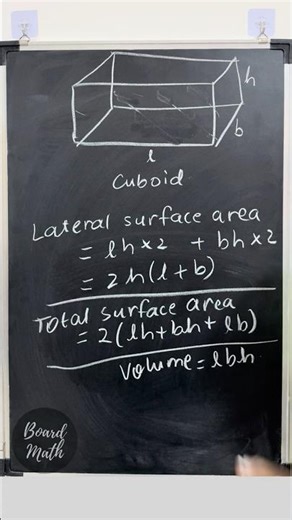 h
b
l
Cuboid
Lateral surface area
= lh×2 + bh×2
= 2h(l+b)
Total surface area
= 2(lh+bh+lb)
Volume = lbh
Board
Math